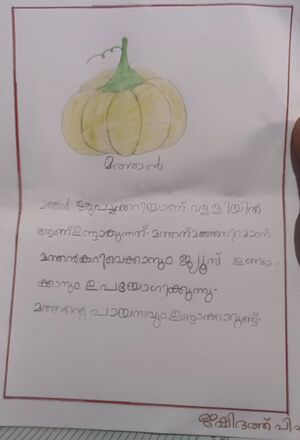 മത്തൻ
മത്തൻ ഒരു പച്ചക്കറിയാണ് വള്ളിയിൽ
ആണ് ഉണ്ടാകുന്നത്. മത്തന് മഞ്ഞനിറമാണ്.
മത്തൻകറിവെക്കാനും ജ്യൂസ് ഉണ്ടാ-
ക്കാനും ഉപയോഗിക്കുന്നു.
മത്തന്റെ പായസവും ഉണ്ടാക്കാറുണ്ട്.
ഋഷിദത്ത് പി